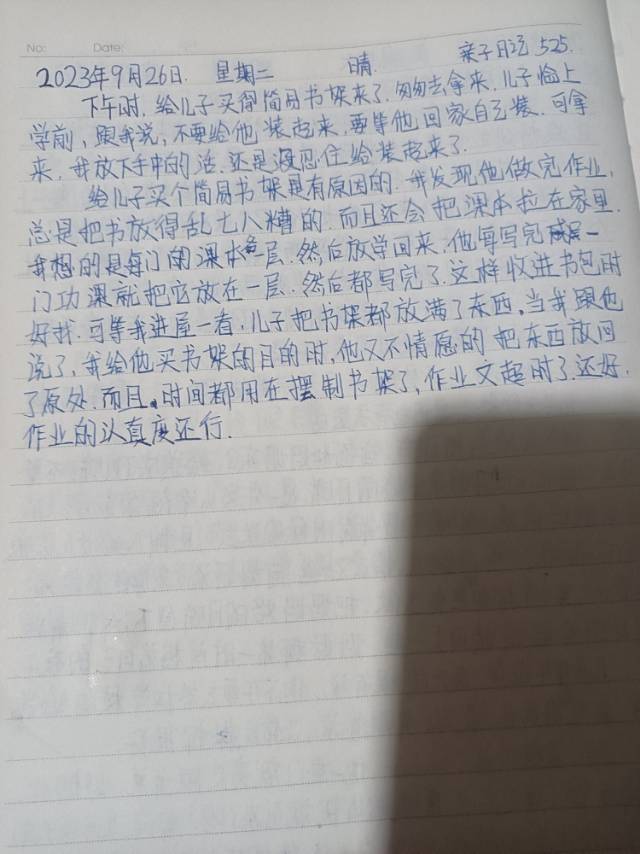 No: Date:
2023年9月26日. 星期二 晴. 亲子日记 525.
下午时, 给儿子买得简易书架来了. 匆匆去拿来. 儿子临上
学前, 跟我说, 不要给他装起来, 要等他回家自己装. 可拿
来, 我放下手中的活. 还是没忍住给装起来了.
给儿子买个简易书架是有原因的. 我发现他做完作业,
总是把书放得乱七八糟的. 而且还会把课本拉在家里.
我想的是每门的课本一层. 然后放学回来, 他每写完一
门功课就把它放在一层. 然后都写完了. 这样收进书包时
好找. 可等我进屋一看, 儿子把书架都放满了东西, 当我跟他
说了, 我给他买书架的目的时, 他又不情愿的把东西放回
了原处. 而且. 时间都用在摆制书架了, 作业又超时了. 还好.
作业的认真度还行.